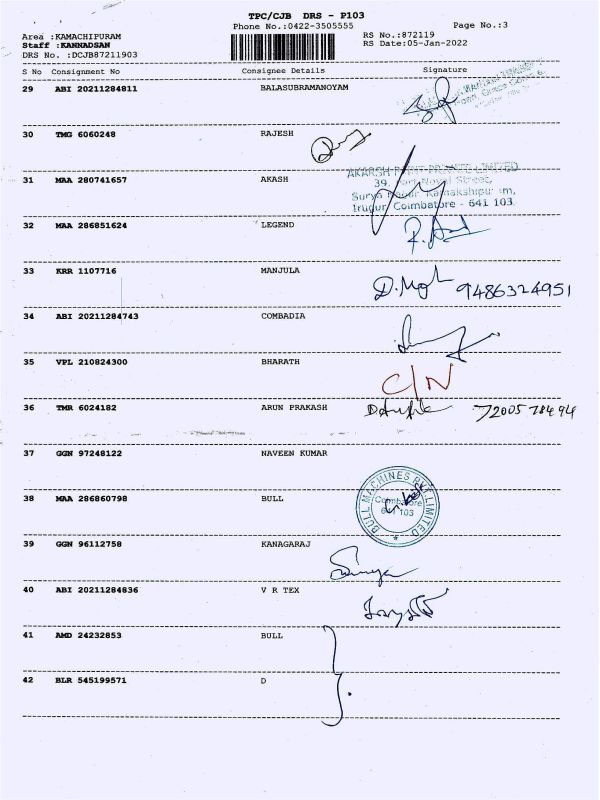 TPC/CJB DRS - P103
Phone No.:0422-3505555
Page No.:3
Area :KAMACHIPURAM
RS No.:872119
Staff :KANNADSAN
RS Date:05-Jan-2022
DRS No. :DCJB87211903
S No Consignment No Consignee Details Signature
29 ABI 20211284811 BALASUBRAMANOYAM
30 TMG 6060248 RAJESH
31 MAA 280741657 AKASH
AKARSH PRIVATE LIMITED
39, Street,
Surya Kamakshipuram,
Irugur, Coimbatore - 641 103.
32 MAA 286851624 LEGEND
33 KRR 1107716 MANJULA
9486324951
34 ABI 20211284743 COMBADIA
35 VPL 210824300 BHARATH
C/N
36 TMR 6024182 ARUN PRAKASH
37 GGN 97248122 NAVEEN KUMAR
38 MAA 286860798 BULL
BULL MACHINES PVT. LIMITED
Coimbatore
641 103
39 GGN 96112758 KANAGARAJ
40 ABI 20211284836 V R TEX
41 AMD 24232853 BULL
42 BLR 545199571 D